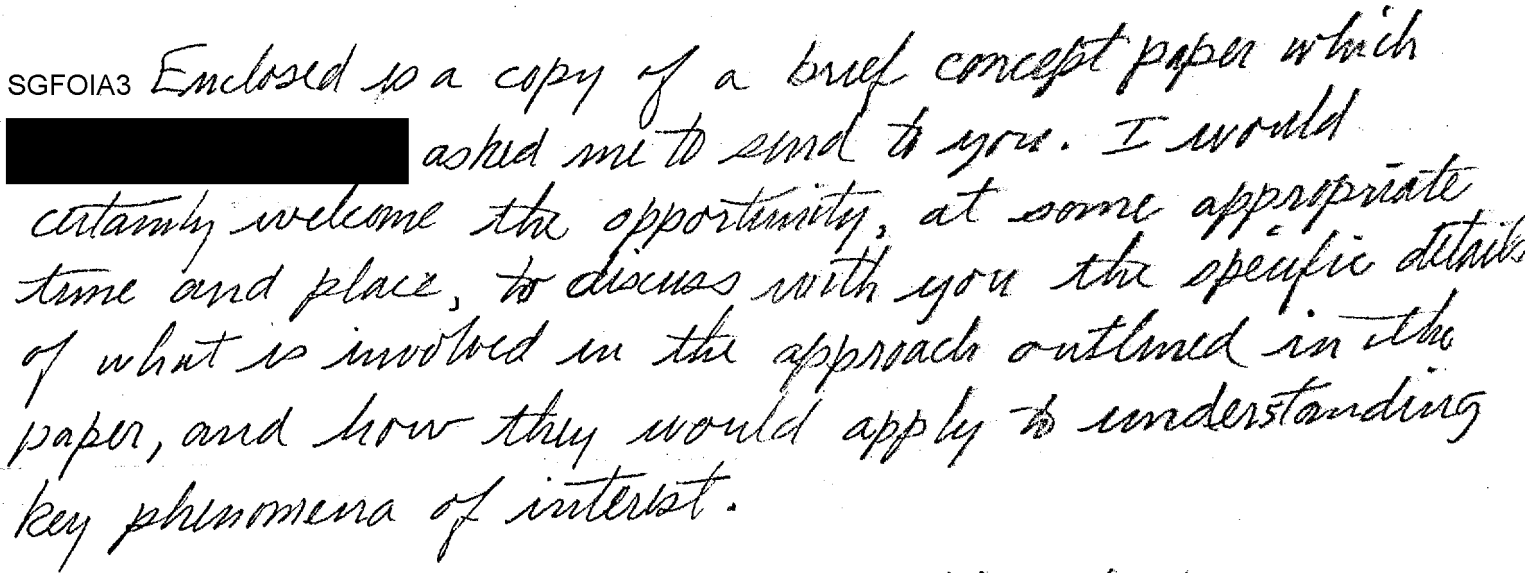 SGFOIA3 Enclosed is a copy of a brief concept paper which
asked me to send to you. I would
certainly welcome the opportunity, at some appropriate
time and place, to discuss with you the specific details
of what is involved in the approach outlined in the
paper, and how they would apply to understanding
key phenomena of interest.